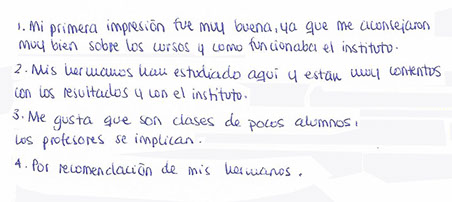 1. Mi primera impresión fue muy buena, ya que me aconsejaron
muy bien sobre los cursos y como funcionaba el instituto.
2. Mis hermanos han estudiado aquí y están muy contentos
con los resultados y con el instituto.
3. Me gusta que son clases de pocos alumnos,
los profesores se implican.
4. Por recomendación de mis hermanos.